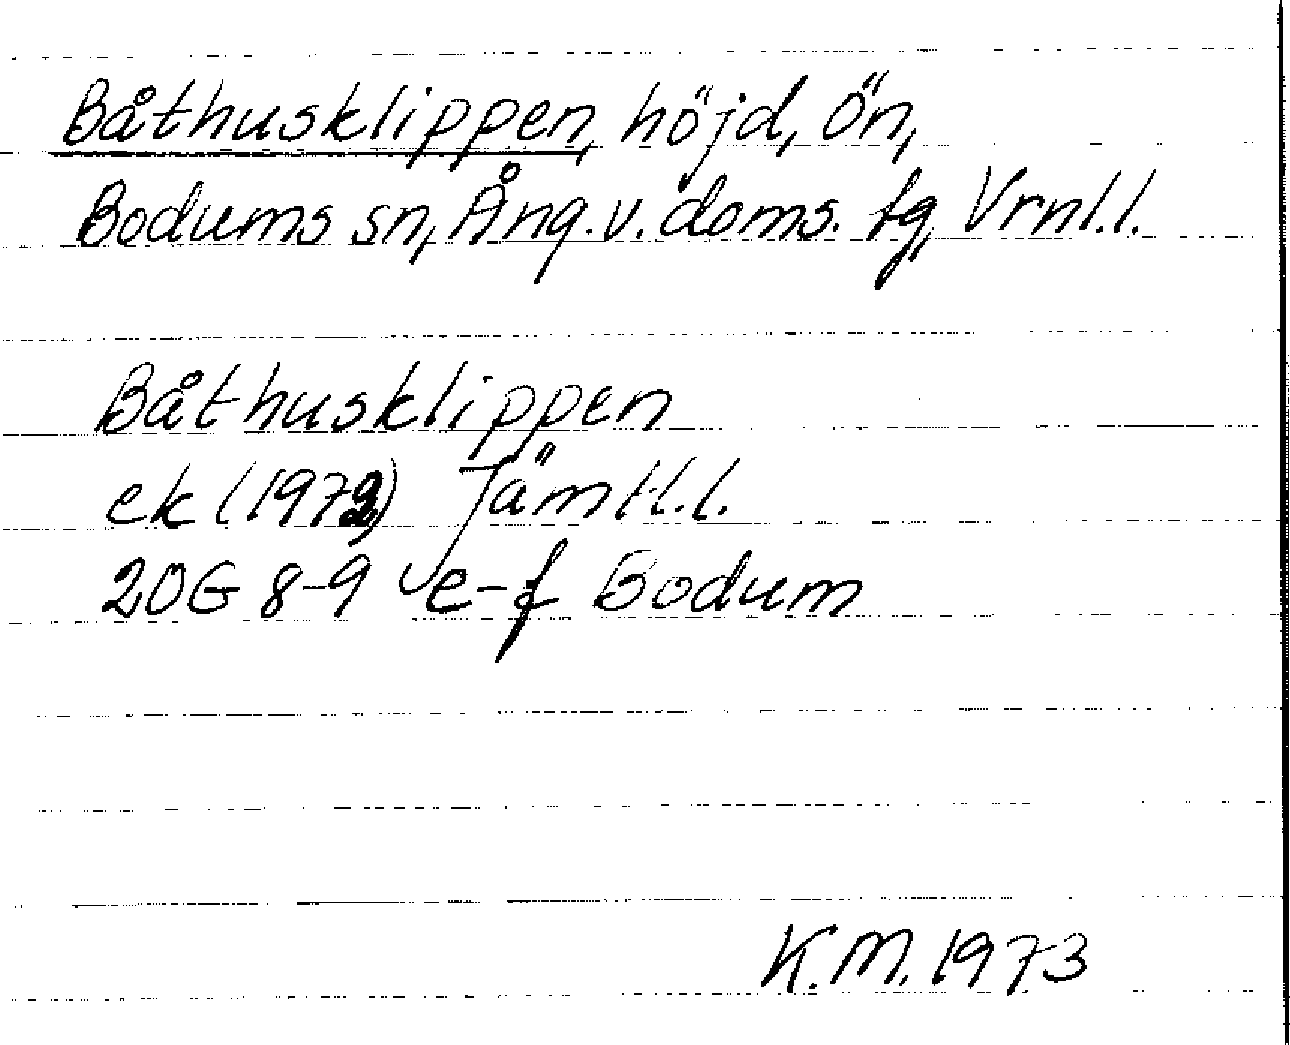 Båthusklippen, höjd, Ön,
Bodums sn, Ång.v.doms. tg, Vrnl.l.
Båthusklippen
ek (1972) Jämtl.l.
20G 8-9 e-f Bodum
K.M. 1973